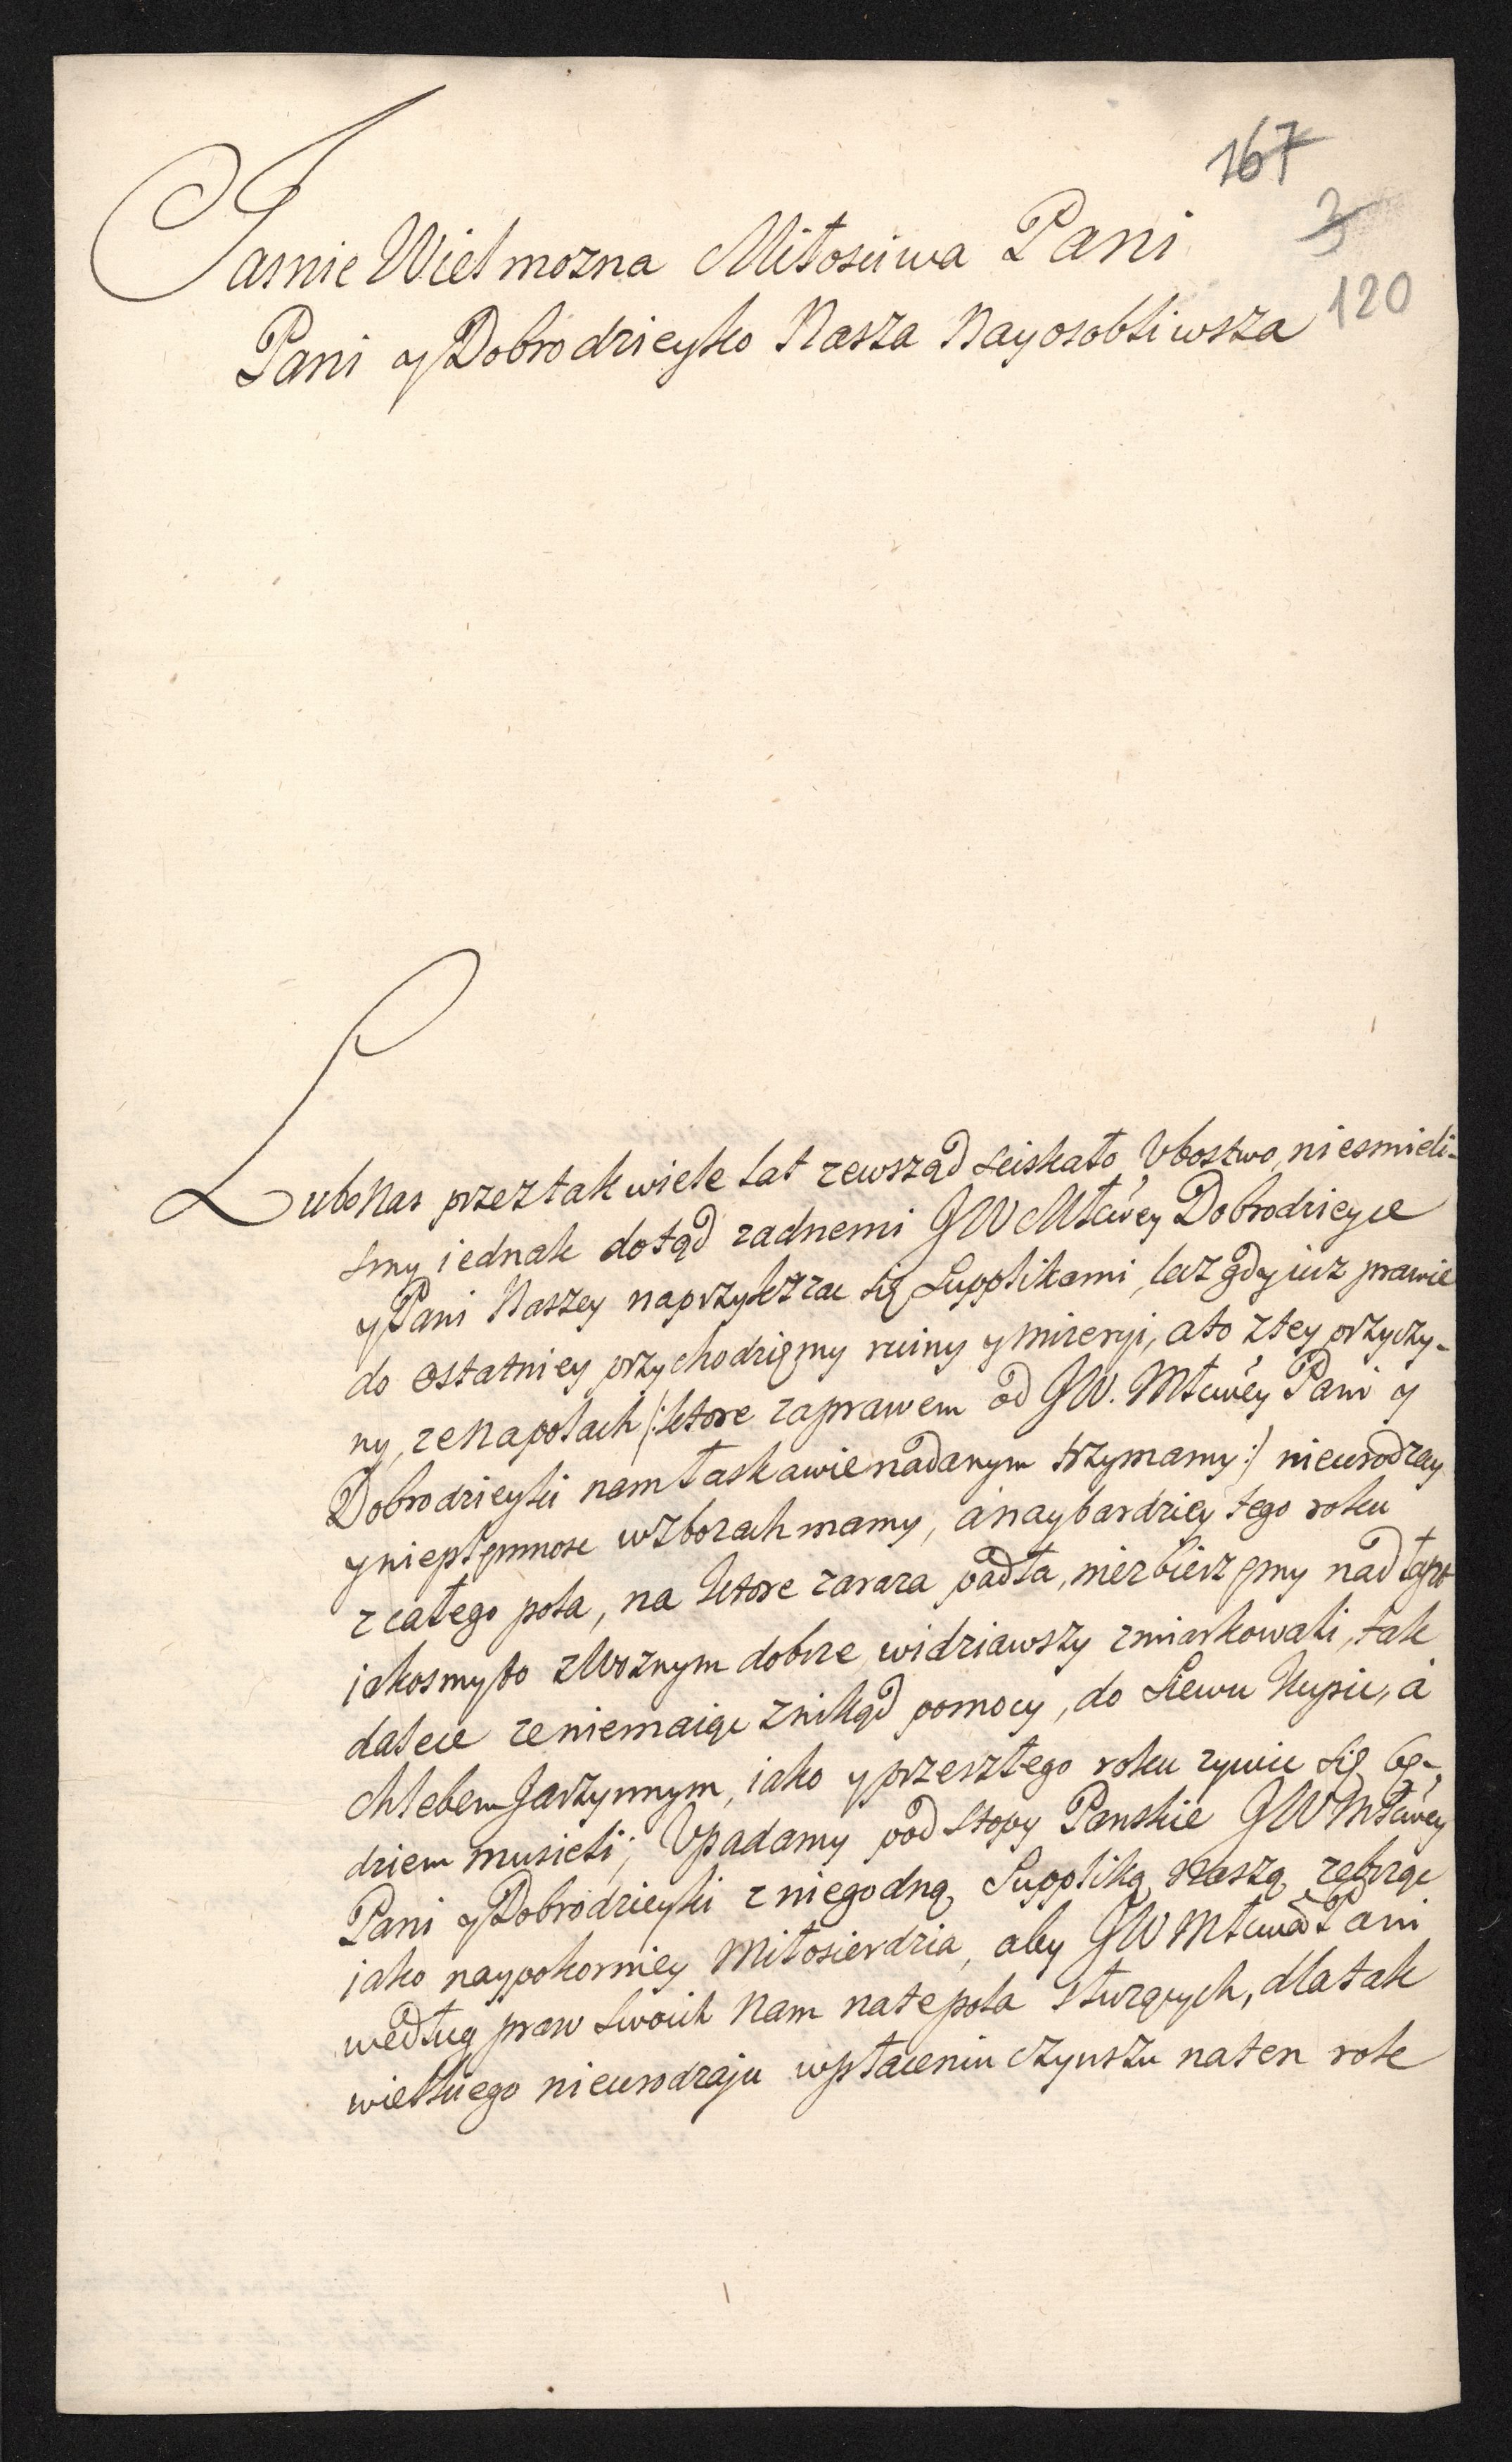 167
3
Jasnie Wielmozna Miłosciwa Pani
120
Pani y Dobrodzieyko Nasza Nayosobliwsza
Lubo Nas przez tak wiele lat zewsząd sciskało Vbostwo, niesmieli-
smy iednak dotąd zadnemi JW Młćiwey Dobrodzieyce
y Pani Naszey naprzykrzac się Supplikami, lecz gdy iuz prawie
do ostatniey przychodzięmy ruiny y mizeryi, a to z tey przyczy-
ny, ze Na polach /: ktore za prawem od JW. Młćiwey Pani y
Dobrodzieyki nam łaskawie nadanym trzymamy :/ nieurodzay
y niepłęnnosc w Zbozach mamy, á naybardziey tego roku
z całego pola, na ktore zaraza padła, niezbierzęmy nad
jakosmy to z Woznym dobrze widziawszy zmiarkowali, tak
dalece ze niemaiąc znikąd pomocy, do Siewu Kupic, á
chlebem Jarzynnym, iako y przeszłego roku zywic się bę-
dziem musieli; Vpadamy pod Stopy Panskie JW Młćiwey
Pani y Dobrodzieyki z niegodną Suppliką Naszą zebrząc
jako naypokorniey Miłosierdzia, aby JW Młćiwa Pani
według praw Swoich Nam na te pola słuzących, dla tak
wielkiego nieurodzaju w płaceniu Czynszu na ten rok